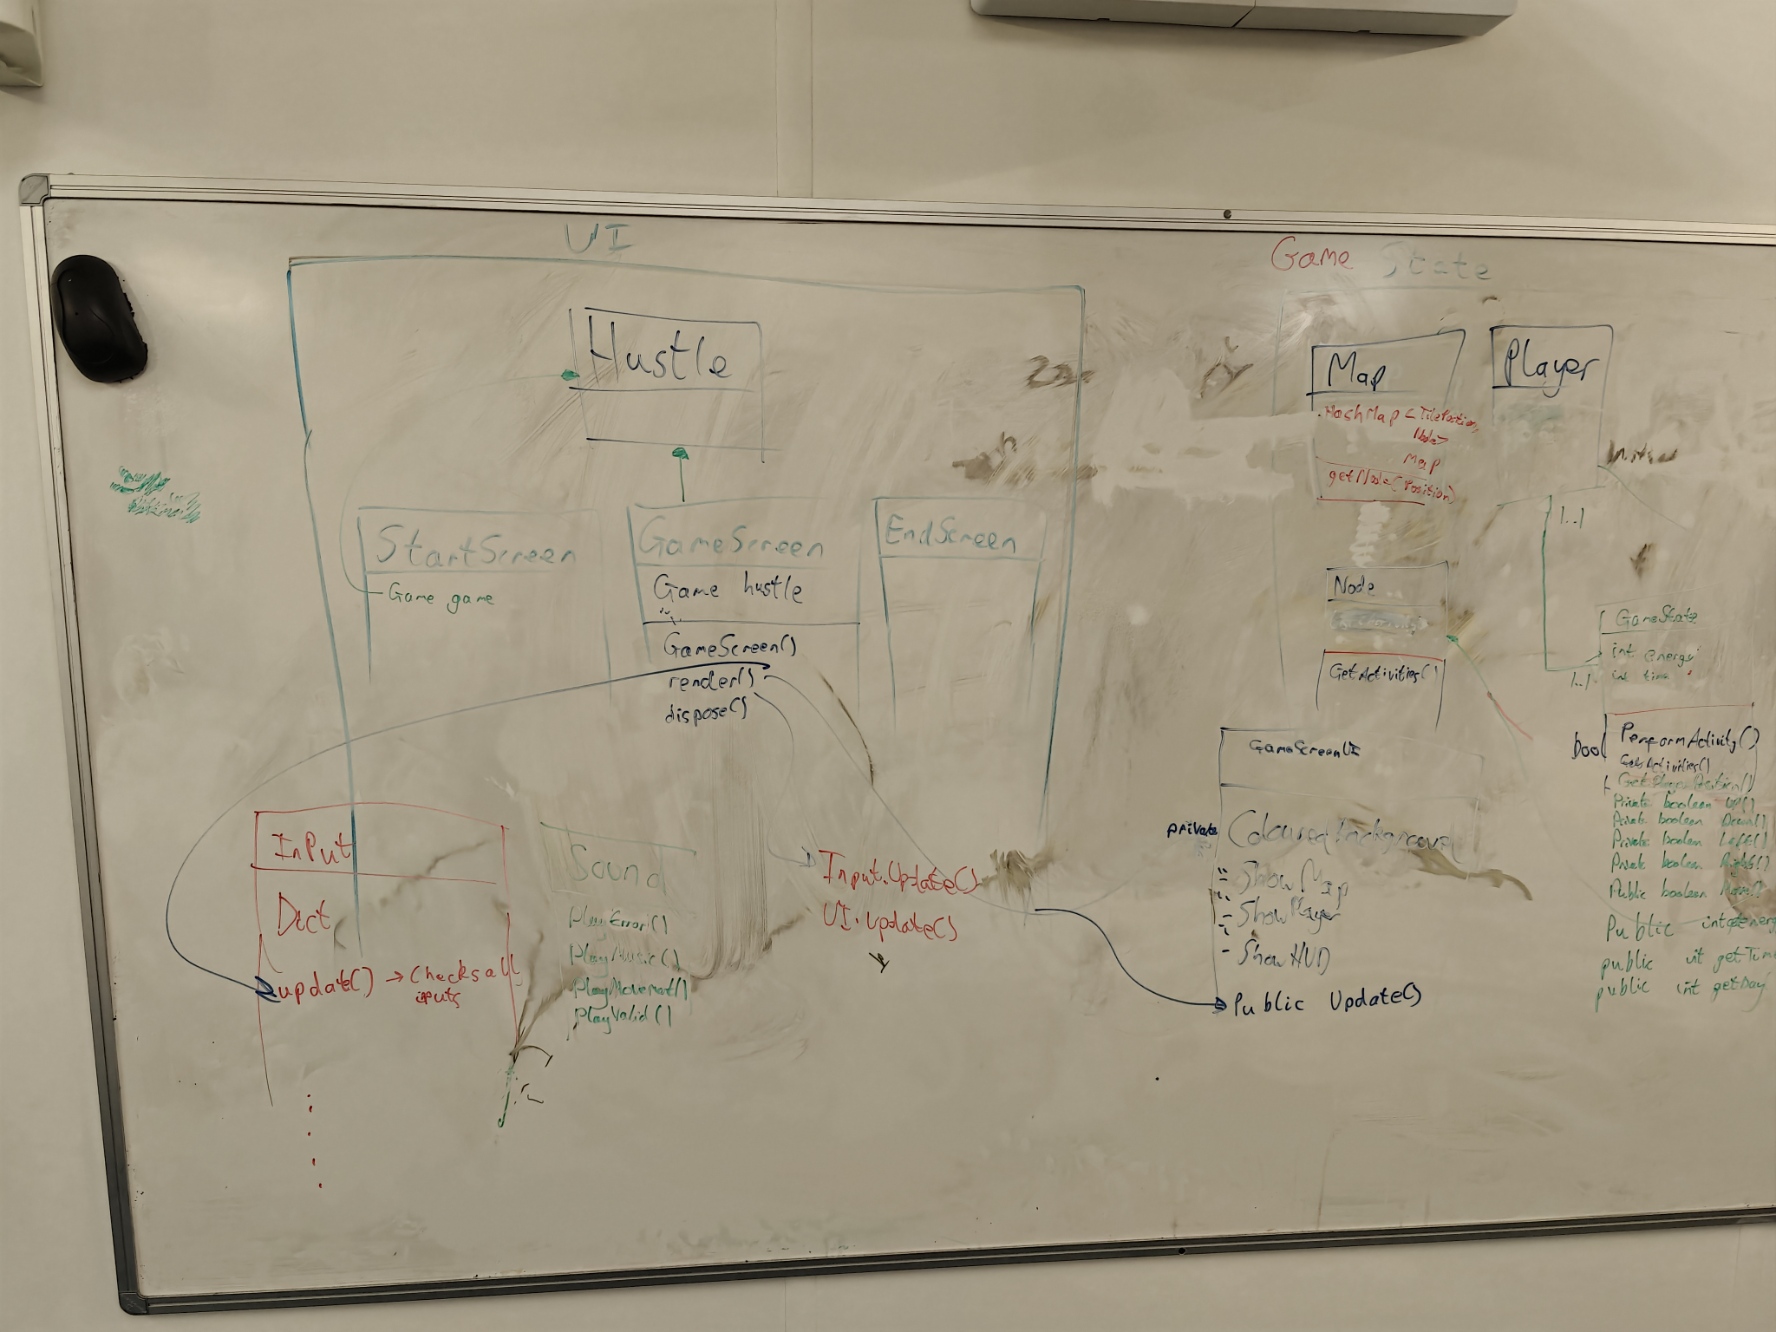 UI
Hustle
StartScreen
Game game
GameScreen
Game hustle
GameScreen()
render()
dispose()
EndScreen
InPut
Dict
update() → Checks all
inputs
Sound
playError()
playMusic()
playMovement()
playValid()
Input.Update()
UI.update()
Game State
Map
HashMap <TilePosition,
Node>
Map
getNode(Position)
Player
1..1
Node
GetActivities()
GameScreenUI
private Coloured background
- ShowMap
- ShowPlayer
- ShowHUD
Public Update()
GameState
int energy
int time
1..1
bool PerformActivity()
GetActivities()
GetPlayerPosition()
Private boolean Up()
Private boolean Down()
Private boolean Left()
Private boolean Right()
Public boolean Move()
Public int
public int getTime
public int getDay